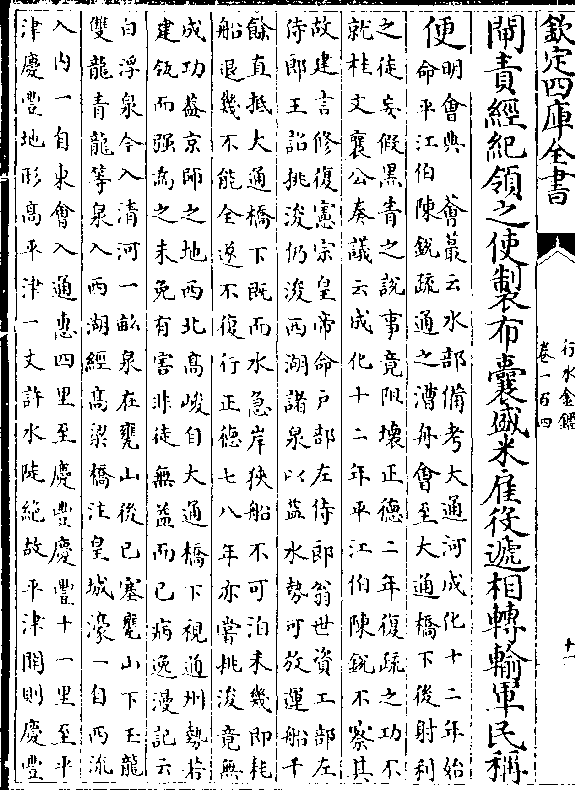 欽定四庫全書
行水金鑑
卷一百四
十一
閘責經紀領之使製布囊盛米雇役遞相轉輸軍民稱
便
明會典 薈蕞云水部備考大通河成化十二年始
命平江伯陳銳疏通之漕舟會至大通橋下後射利
之徒妄假黑眚之說事竟阻壞正德二年復疏之功不
就桂文襄公奏議云成化十二年平江伯陳銳不察其
故建言修復憲宗皇帝命户部左侍郎翁世資工部左
侍郎王詔挑浚仍浚西湖諸泉以益水勢可放運船千
餘直抵大通橋下既而水急岸狹船不可泊未幾即耗
船退幾不能全遂不復行正德七八年亦嘗挑浚竟無
成功葢京師之地西北高峻自大通橋下視通州勢若
建瓴而强為之未免有害非徒無益而已病逸漫記云
白浮泉今入清河一畝泉在甕山後已塞甕山下玉龍
雙龍青龍等泉入西湖經高梁橋注皇城濠一自西流
入内一自東會入通惠四里至慶豐慶豐十一里至平
津慶豐地形高平津一丈許水陡絶故平津閘則慶豐